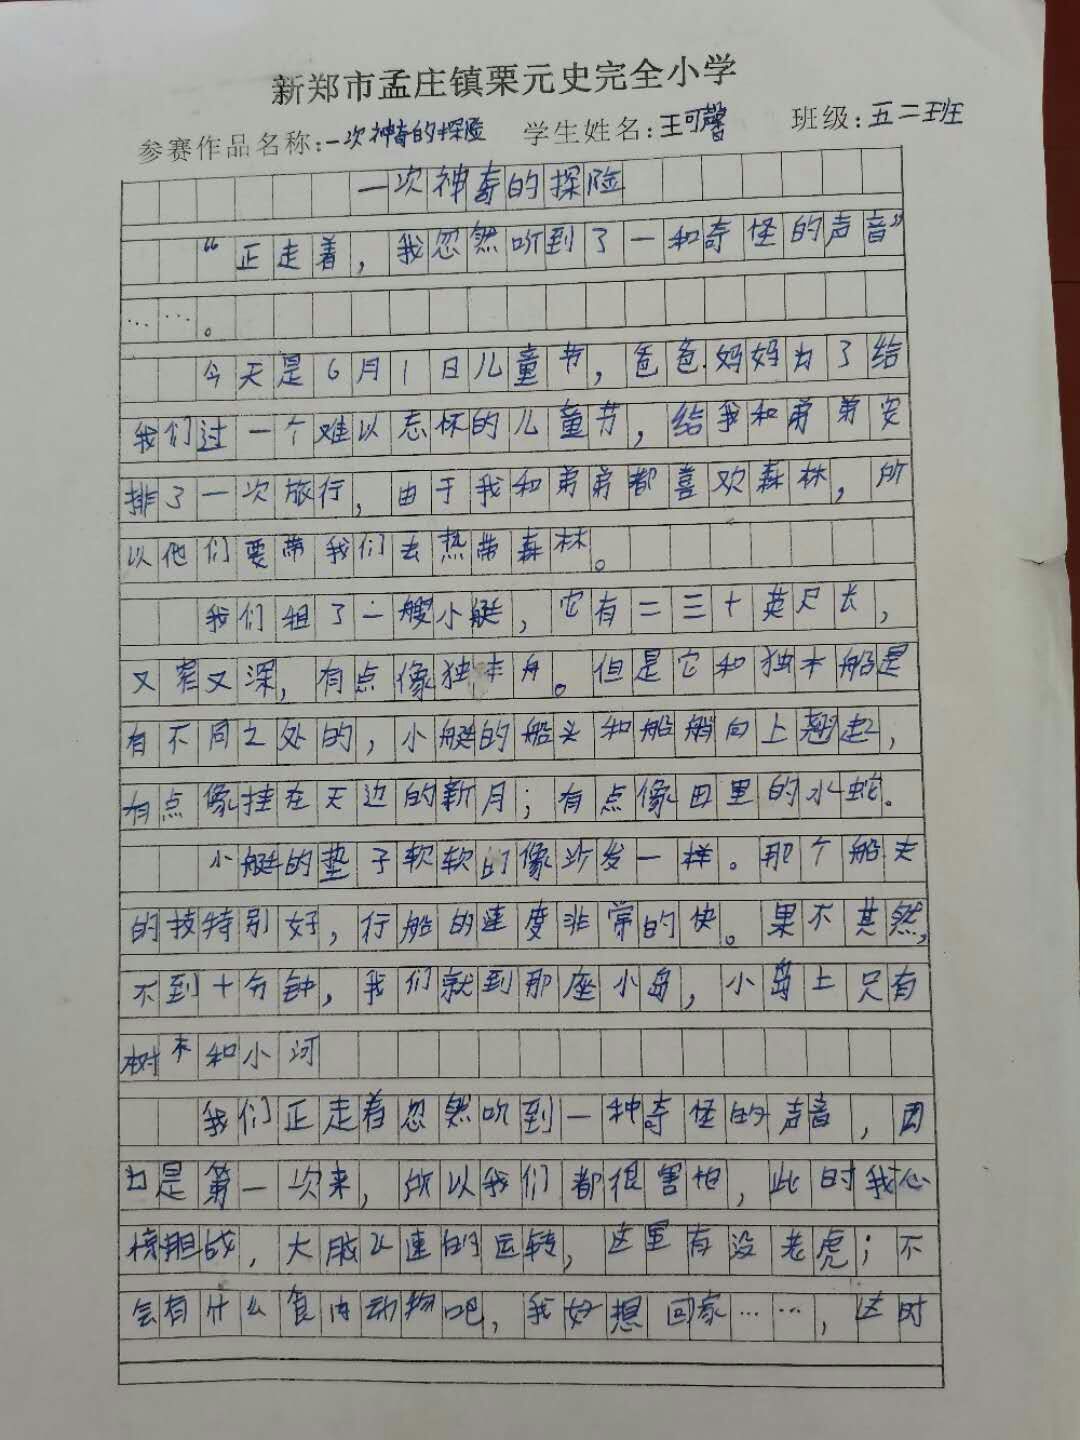 新郑市孟庄镇栗元史完全小学
参赛作品名称:一次神奇的探险 学生姓名:王可馨 班级:五二班
一次神奇的探险
“正走着,我忽然听到了一和奇怪的声音”
……。
今天是6月1日儿童节,爸爸妈妈为了给
我们过一个难以忘怀的儿童节,给我和弟弟安
排了一次旅行,由于我和弟弟都喜欢森林,所
以他们要带我们去热带森林。
我们租了一艘小艇,它有二三十英尺长,
又窄又深,有点像独木舟。但是它和独木船是
有不同之处的,小艇的船头和船艄向上翘起,
有点像挂在天边的新月;有点像田里的水蛇.
小艇的垫子软软的像沙发一样。那个船夫
的技特别好,行船的速度非常的快。果不其然,
不到十分钟,我们就到那座小岛,小岛上只有
树木和小河
我们正走着忽然听到一种奇怪的声音,因
为是第一次来,所以我们都很害怕,此时我心
惊胆战,大脑飞速的运转,这里有没老虎;不
会有什么食肉动物吧,我好想回家……,这时